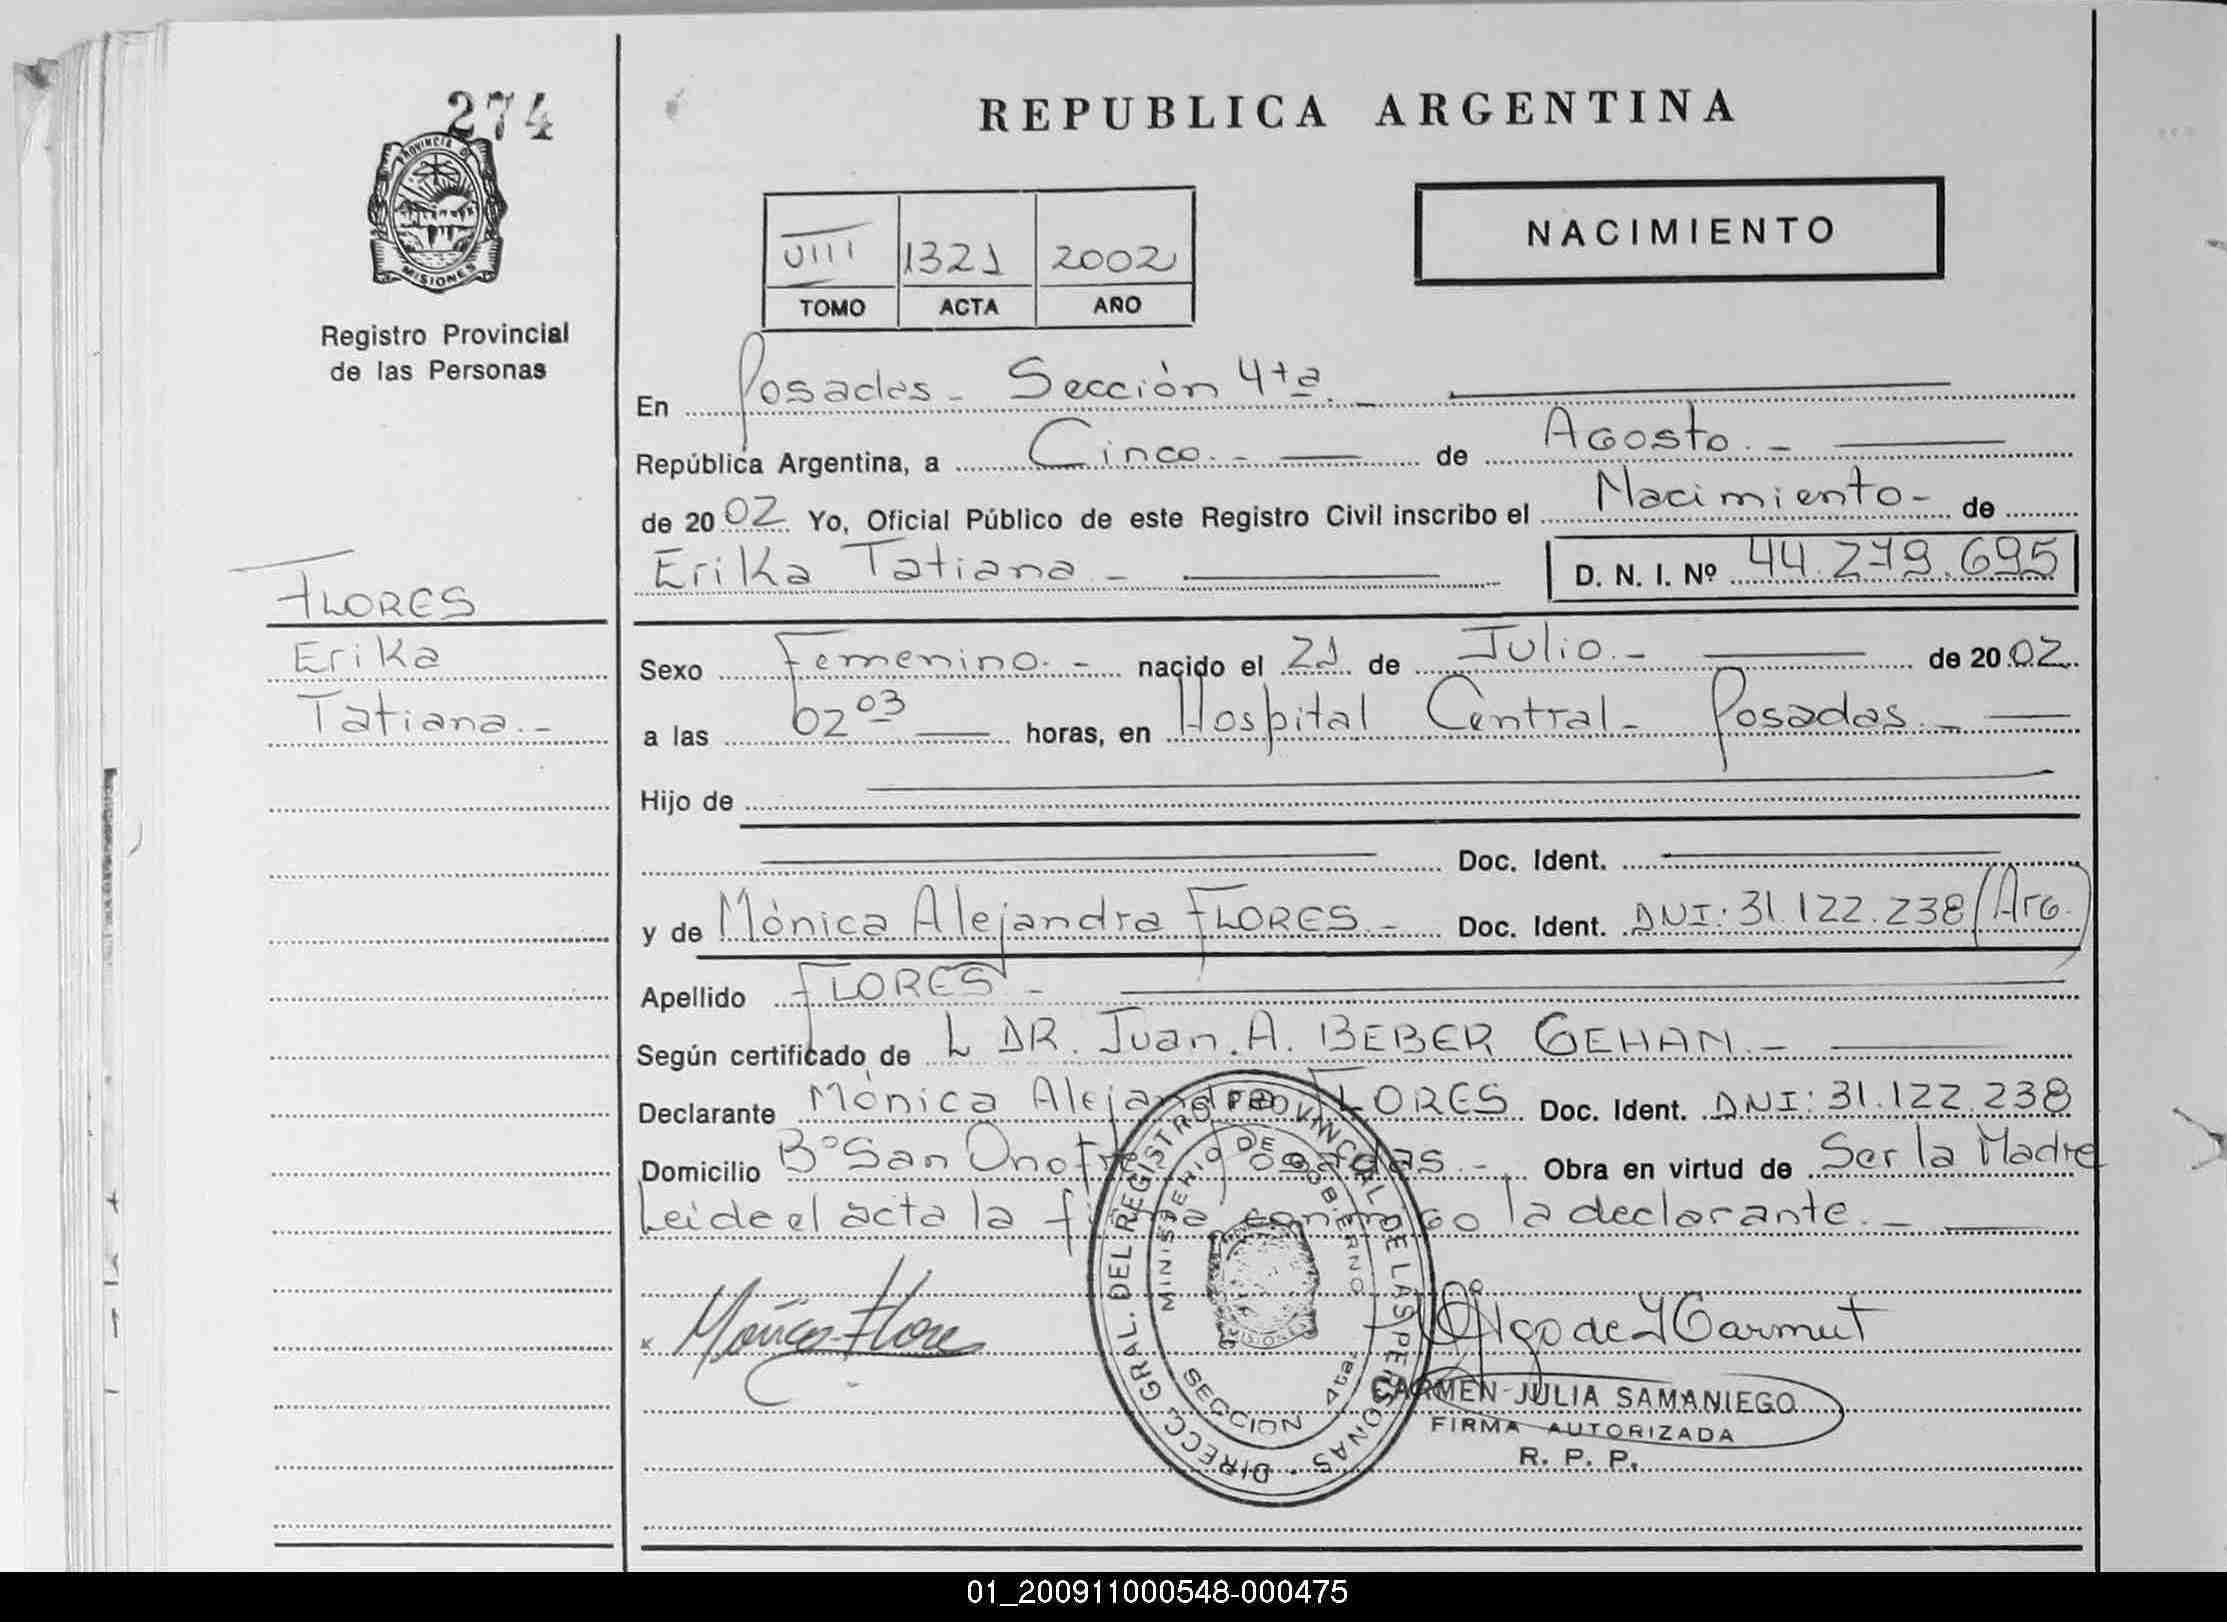 274
PROVINCIA DE
MISIONES
Registro Provincial
de las Personas
FLORES
Erika
Tatiana.-
REPUBLICA ARGENTINA
NACIMIENTO
VIII 1321 2002
TOMO ACTA AÑO
En Posadas - Sección 4ta. -
República Argentina, a Cinco.- de Agosto.-
de 2002 Yo, Oficial Público de este Registro Civil inscribo el Nacimiento- de
Erika Tatiana - D. N. I. Nº 44.279.695
Sexo Femenino.- nacido el 21 de Julio.- de 2002
a las 02 03 horas, en Hospital Central - Posadas.-
Hijo de
Doc. Ident.
y de Mónica Alejandra FLORES.- Doc. Ident. DNI: 31.122.238 (Arg.)
Apellido FLORES -
Según certificado de L DR. Juan. A. BEBER GEHAN.-
Declarante Mónica Alejandra FLORES Doc. Ident. DNI: 31.122.238
Domicilio Bº San Onofre Posadas.- Obra en virtud de Ser la Madre
Leida el acta la firma conmigo la declarante.-
DIRECC. GRAL. DEL REGISTRO PROVINCIAL DE LAS PERSONAS
MINISTERIO DE GOBIERNO
MISIONES
SECCION 4ta.
x Mónica Flore
CARMEN JULIA SAMANIEGO
FIRMA AUTORIZADA
R. P. P.
01_200911000548-000475